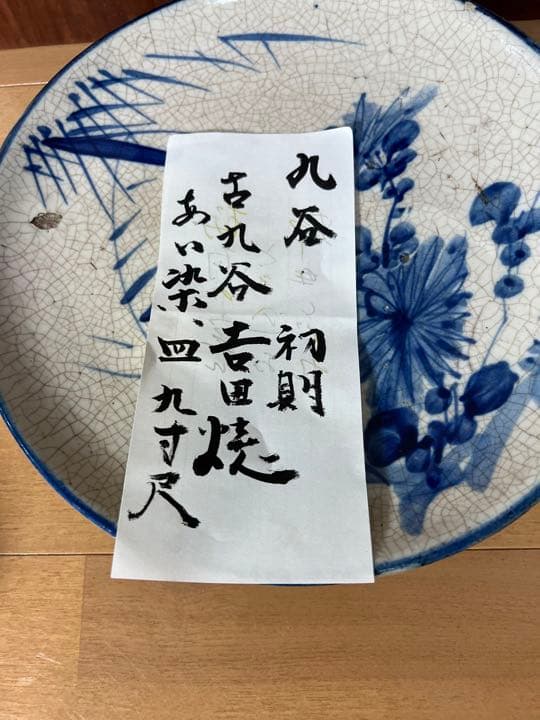 九谷 初期
古九谷 吉田焼
あい染、皿 九寸尺